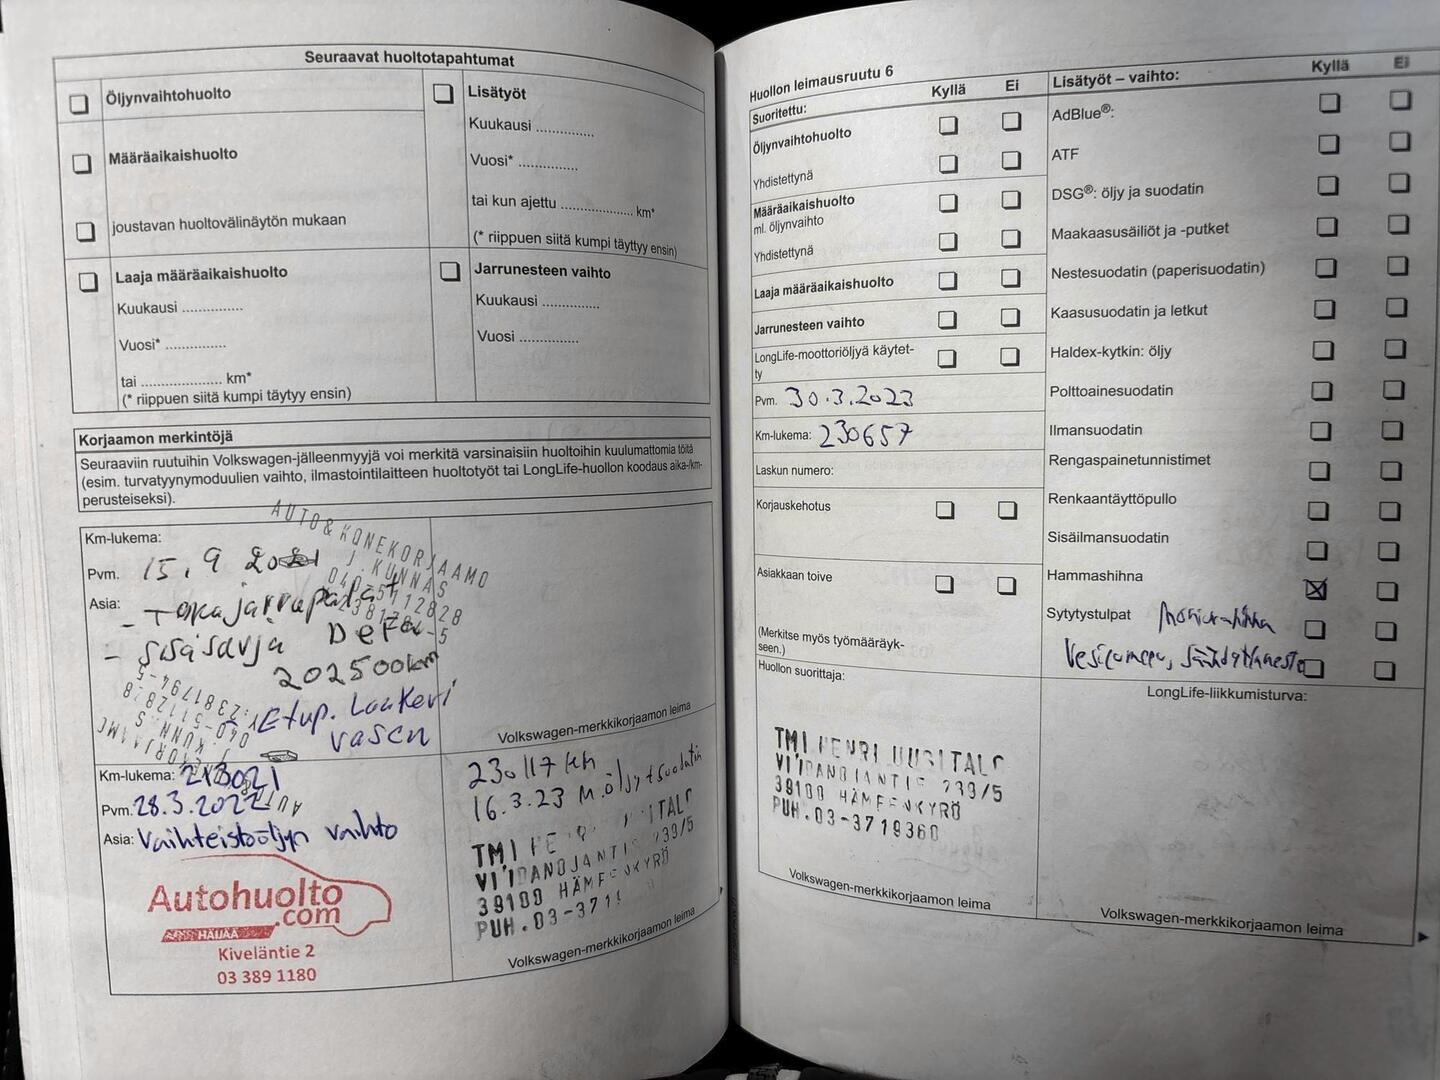 Seuraavat huoltotapahtumat
Öljynvaihtohuolto
Määräaikaishuolto
joustavan huoltovälinäytön mukaan
Lisätyöt
Kuukausi ..............
Vuosi* ..............
tai kun ajettu ................. km*
(* riippuen siitä kumpi täytyy ensin)
Laaja määräaikaishuolto
Kuukausi ..............
Vuosi* ..............
tai ................... km*
(* riippuen siitä kumpi täytyy ensin)
Jarrunesteen vaihto
Kuukausi ..............
Vuosi ..............
Korjaamon merkintöjä
Seuraaviin ruutuihin Volkswagen-jälleenmyyjä voi merkitä varsinaisiin huoltoihin kuulumattomia töitä
(esim. turvatyynymoduulien vaihto, ilmastointilaitteen huoltotyöt tai LongLife-huollon koodaus aika-/km-
perusteiseksi).
AUTO & KONEKORJAAMO
J. KUNNAS
Km-lukema:
Pvm. 15.9 2021
Asia: - Taka jarrupalat
- sisäsarja Defa
202500km
Etup. Laakeri
vasen
Volkswagen-merkkikorjaamon leima
Km-lukema: 213021
Pvm. 28.3.2022
Asia: Vaihteistoöljyn vaihto
Autohuolto
.com
HÄIJÄÄ
Kiveläntie 2
03 389 1180
230117 km
16.3.23 M.öljyt suodatin
TMI
39100 HÄMEENKYRÖ
PUH. 03-371
Volkswagen-merkkikorjaamon leima
Huollon leimausruutu 6
Suoritettu: Kyllä Ei
Öljynvaihtohuolto
Yhdistettynä
Määräaikaishuolto
ml. öljynvaihto
Yhdistettynä
Laaja määräaikaishuolto
Jarrunesteen vaihto
LongLife-moottoriöljyä käytet-
ty
Pvm. 30.3.2023
Km-lukema: 230657
Laskun numero:
Korjauskehotus
Asiakkaan toive
(Merkitse myös työmääräyk-
seen.)
Huollon suorittaja:
TMI HENRI UUSITALO
239/5
39100 HÄMEENKYRÖ
PUH. 03-3719360
Volkswagen-merkkikorjaamon leima
Lisätyöt – vaihto: Kyllä Ei
AdBlue®:
ATF
DSG®: öljy ja suodatin
Maakaasusäiliöt ja -putket
Nestesuodatin (paperisuodatin)
Kaasusuodatin ja letkut
Haldex-kytkin: öljy
Polttoainesuodatin
Ilmansuodatin
Rengaspainetunnistimet
Renkaantäyttöpullo
Sisäilmansuodatin
Hammashihna
Sytytystulpat Moniurahihna
Vesipumppu, Jäähdytinneste
LongLife-liikkumisturva:
Volkswagen-merkkikorjaamon leima